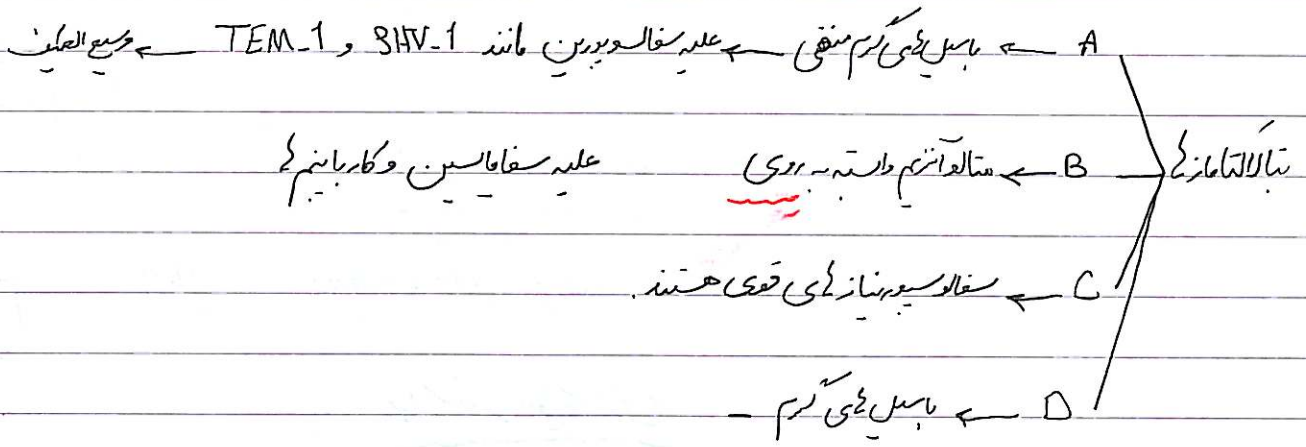 A ← باسیل‌های گرم منفی ← علیه سفالوسپورین مانند SHV-1 و TEM-1 ← وسیع الطیف
بتالاکتامازها
B ← متالوآنزیم وابسته به روی علیه سفامایسین و کارباپنم‌ها
C ← سفالوسپورینازهای قوی هستند.
D ← باسیل‌های گرم -